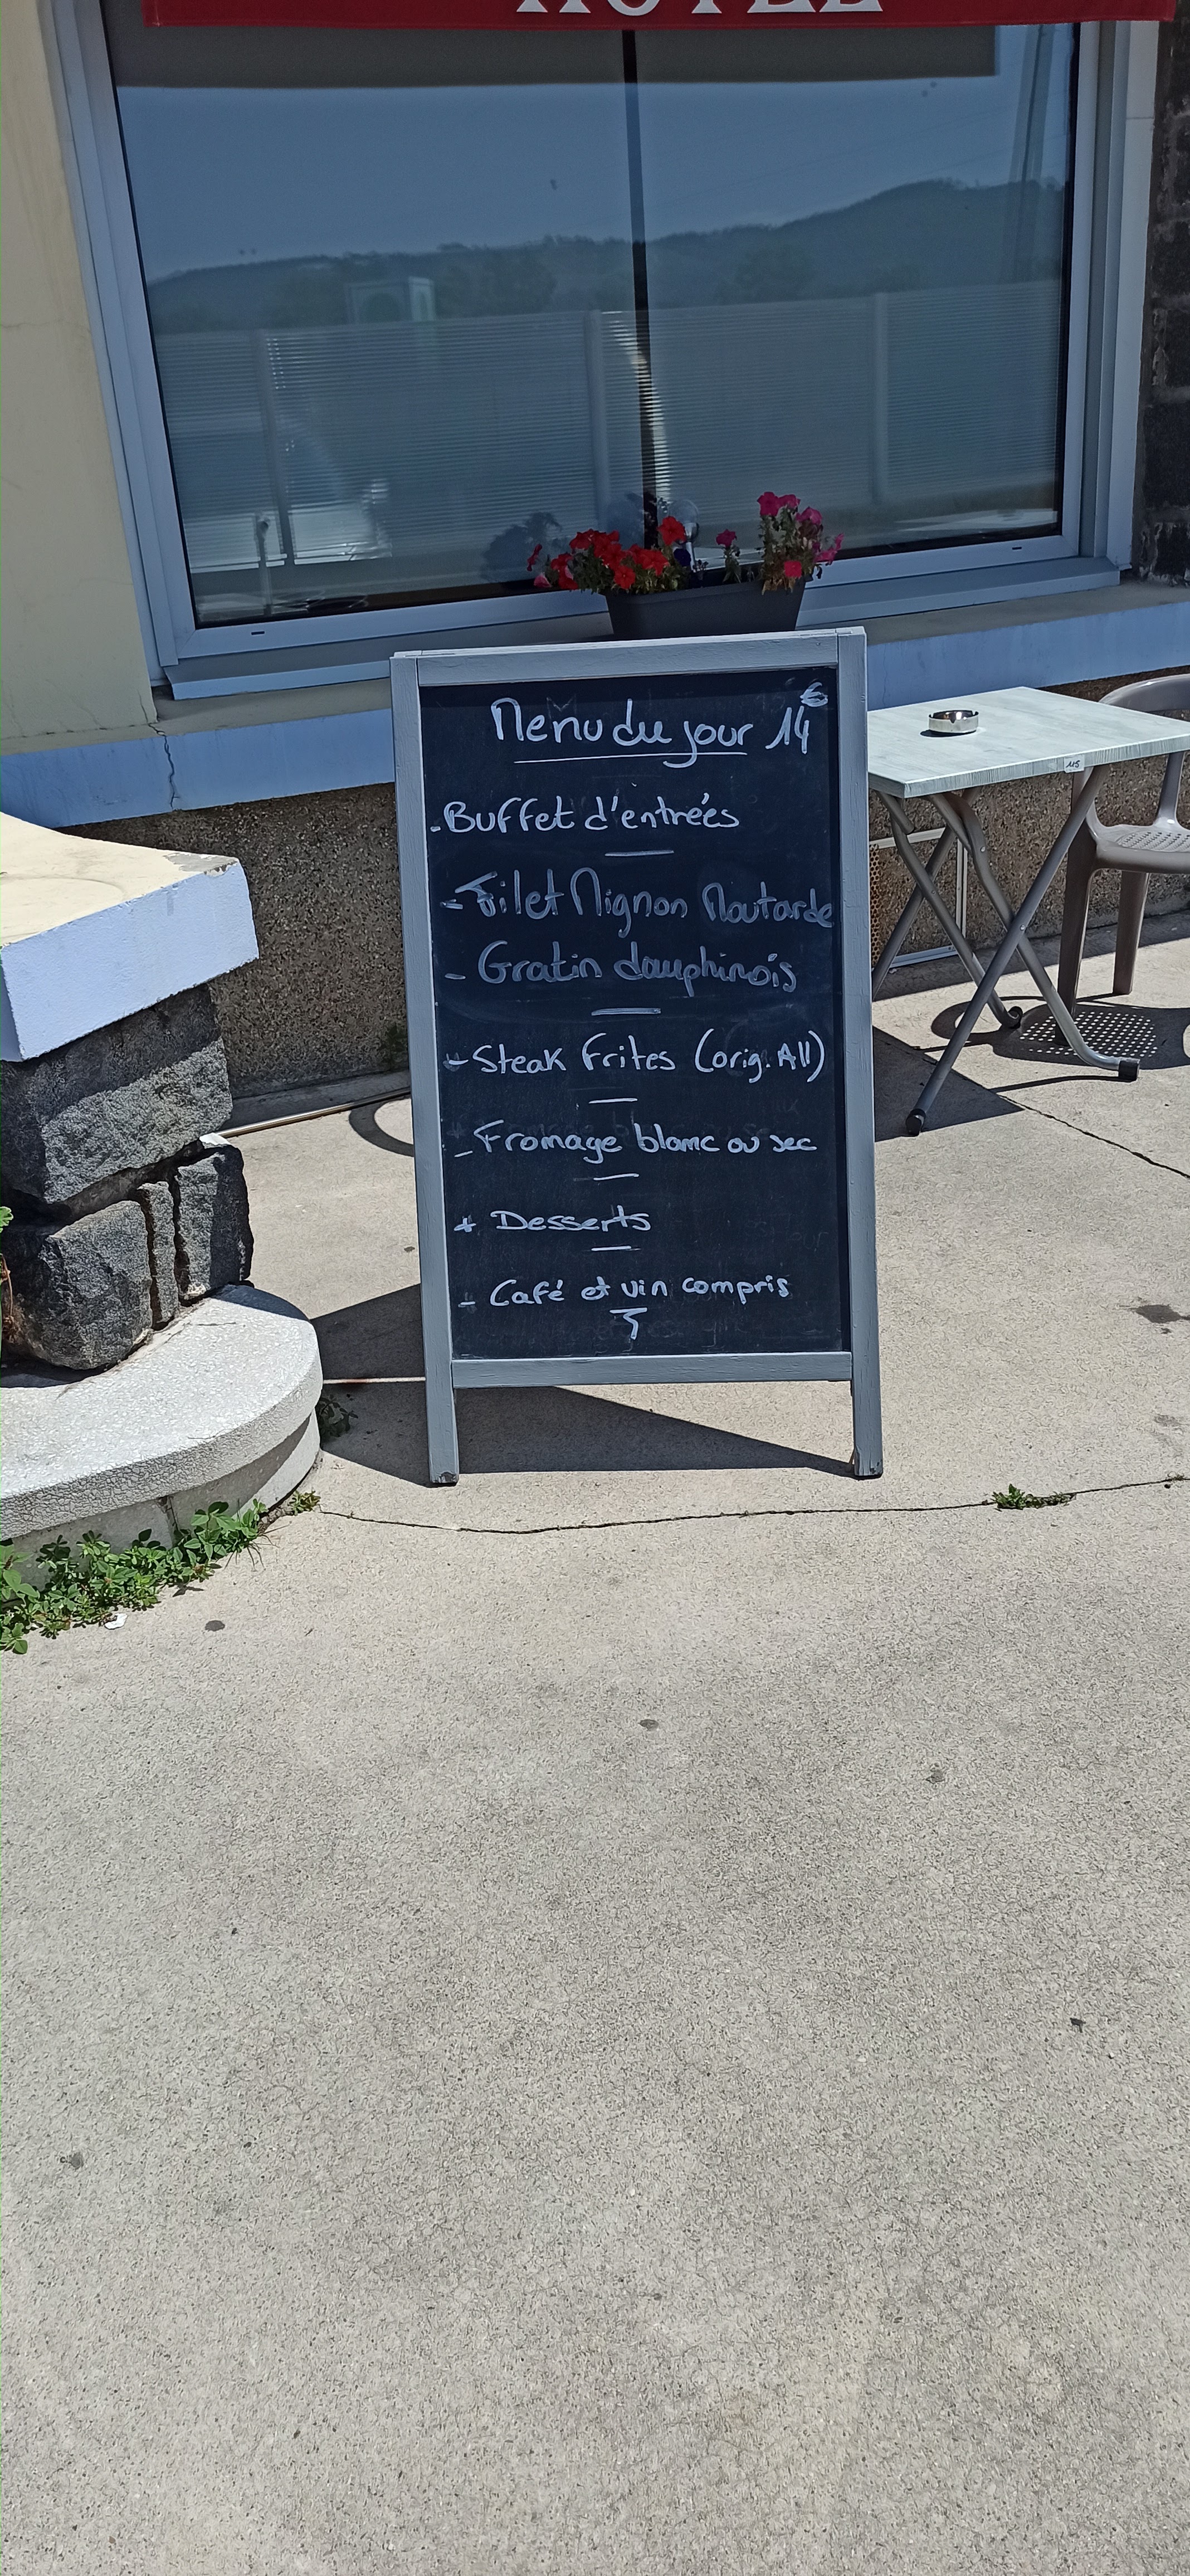 HOTEL
Menu du jour 14€
- Buffet d'entrées
- Filet Mignon Moutarde
- Gratin dauphinois
- Steak Frites (orig. All)
- Fromage blanc ou sec
+ Desserts
- Café et vin compris
115